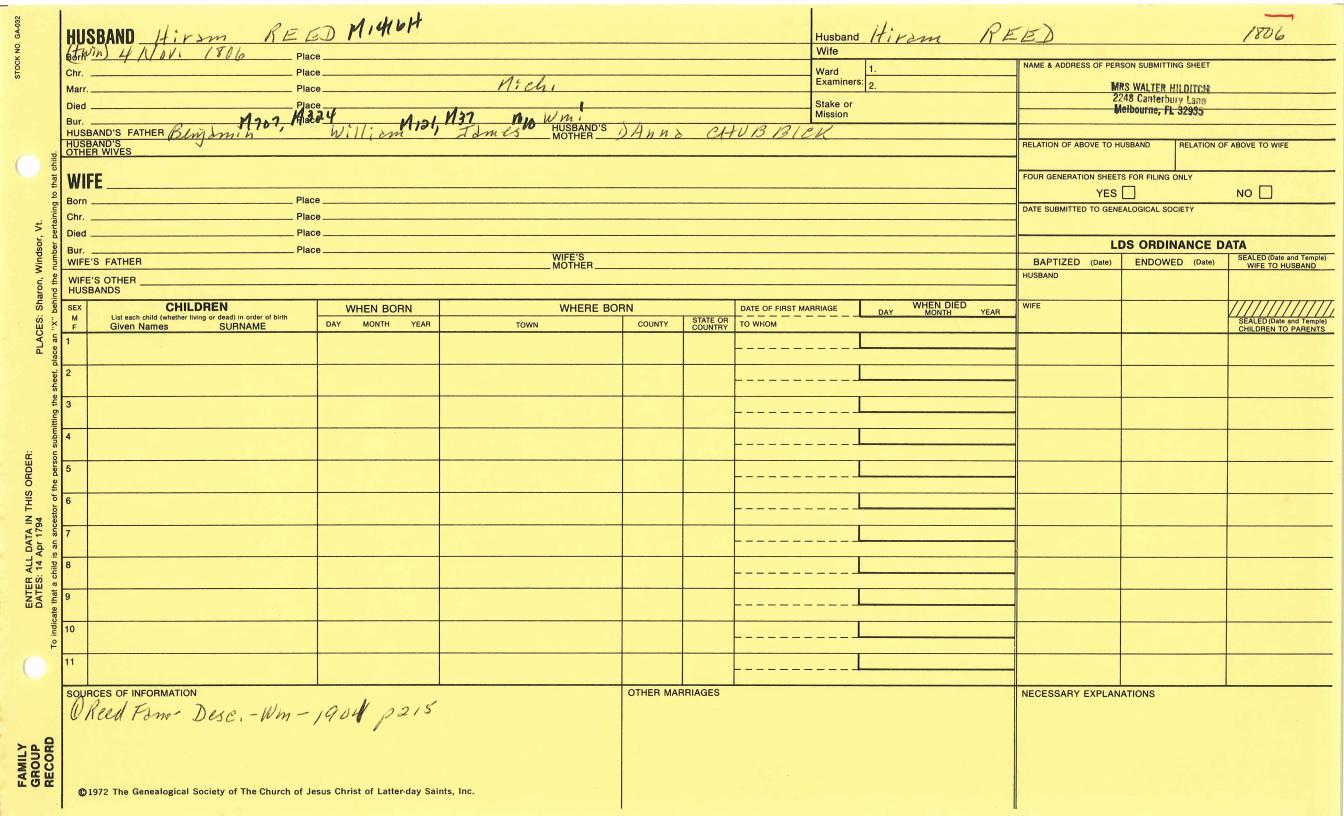 STOCK NO. GA-032
HUSBAND Hiram REED M1416H
Husband Hiram REED 1806
(twin)
Born 4 Nov. 1806 Place
Wife
Chr. Place
Ward Examiners: 1.
2.
Marr. Place Mich.
Died Place
Stake or Mission
Bur. Place
M707, M324 M121, M37 M10 Wm!
HUSBAND'S FATHER Benjamin William James HUSBAND'S MOTHER DAnna CHUBBICK
HUSBAND'S OTHER WIVES
NAME & ADDRESS OF PERSON SUBMITTING SHEET
MRS WALTER HILDITCH
2248 Canterbury Lane
Melbourne, FL 32935
RELATION OF ABOVE TO HUSBAND RELATION OF ABOVE TO WIFE
FOUR GENERATION SHEETS FOR FILING ONLY
YES NO
DATE SUBMITTED TO GENEALOGICAL SOCIETY
WIFE
Born Place
Chr. Place
Died Place
Bur. Place
WIFE'S FATHER WIFE'S MOTHER
WIFE'S OTHER HUSBANDS
LDS ORDINANCE DATA
BAPTIZED (Date) ENDOWED (Date) SEALED (Date and Temple) WIFE TO HUSBAND
HUSBAND
WIFE
SEALED (Date and Temple) CHILDREN TO PARENTS
SEX M F
CHILDREN
List each child (whether living or dead) in order of birth
Given Names SURNAME
WHEN BORN
DAY MONTH YEAR
WHERE BORN
TOWN COUNTY STATE OR COUNTRY
DATE OF FIRST MARRIAGE
TO WHOM
WHEN DIED
DAY MONTH YEAR
1
2
3
4
5
6
7
8
9
10
11
SOURCES OF INFORMATION
① Reed Fam Desc. - Wm - 1904 p215
OTHER MARRIAGES
NECESSARY EXPLANATIONS
©1972 The Genealogical Society of The Church of Jesus Christ of Latter-day Saints, Inc.
FAMILY GROUP RECORD
ENTER ALL DATA IN THIS ORDER:
DATES: 14 Apr 1794 PLACES: Sharon, Windsor, Vt.
To indicate that a child is an ancestor of the person submitting the sheet, place an "X" behind the number pertaining to that child.